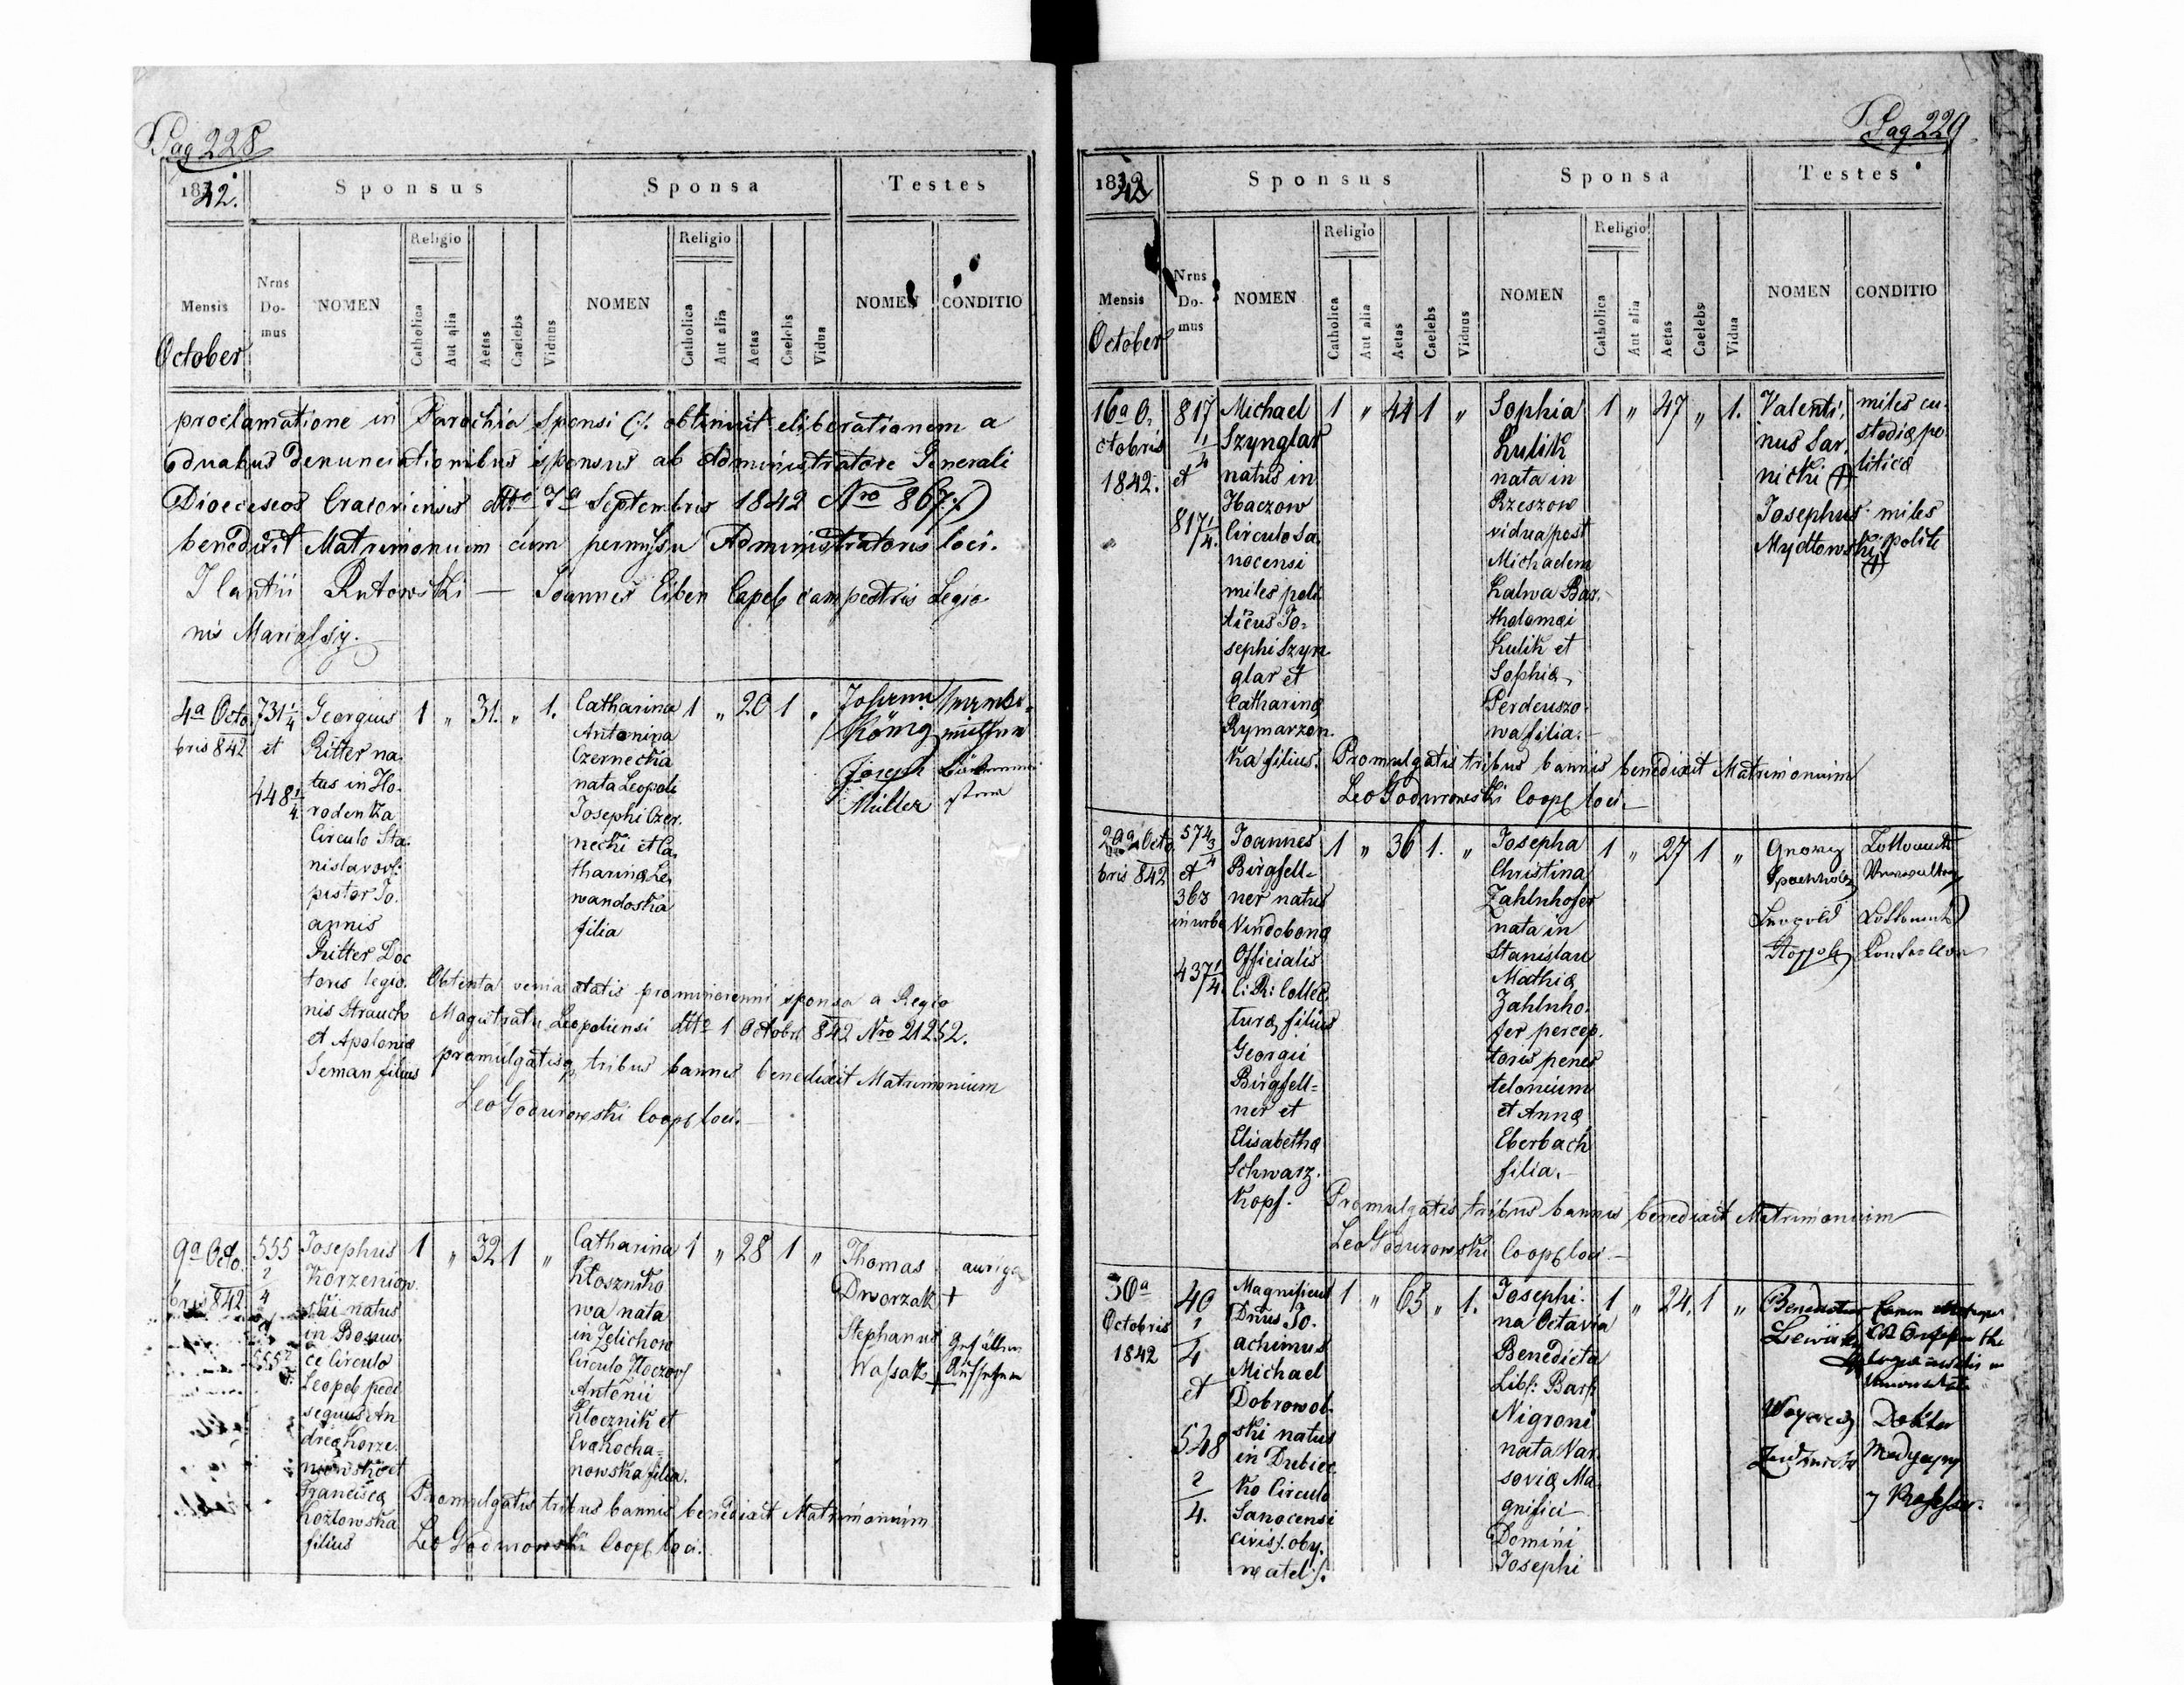 Pag 228
1842.
Sponsus
Sponsa
Testes
Mensis
October
Nrus
Do-
mus
NOMEN
Religio
Catholica
Aut alia
Aetas
Caelebs
Viduus
NOMEN
Religio
Catholica
Aut alia
Aetas
Caelebs
Vidua
NOMEN
CONDITIO
proclamatione in Parochia Sponsi (/. obtinuit eliberationem a
duabus denunciationibus sponsus ab Administratore Generali
Dioeceseos Cracoviensis dtto 7a Septembris 1842 Nro 867./.)
benedixit Matrimonium cum permissu Administratoris loci.
Rutowski — Joannes Eiben Capel. campestris Legio
nis Mariassy.
4a Octo
bris 842
731 1/4
et
448 1/4
Georgius
Ritter na
tus in Ho-
rodenka
Circulo Sta-
nislavov:
pistor Jo-
annis
Ritter Doc
toris legio-
nis Strauch
et Apolonia
Seman filius
1 " 31. " 1.
Catharina
Antonina
Czernecka
nata Leopoli
Josephi Czer-
necki et Ca-
tharina Le-
wandoska
filia
1 " 20 1 "
Johann
König
Joseph
Müller
Obtenta venia aetatis pro minorenni sponsa a Regio
Magistratu Leopoliensi dtto 1 Octobr 842 Nro 21252.
promulgatisq tribus bannis benedixit Matrimonium
Leo Godurowski Coop loci.
9a Octo-
bris 842
555
2
4
et
555
Josephus
Korzeniow-
ski natus
in
ce Circulo
Leopol. pedi
sequus An
drea Korze-
niowski et
Francisca
Kozłowska
filius
1 " 32 1 "
Catharina
Kłosznko
wa nata
in Zelichow
Circulo Złoczov
Antonii
Kłocznik et
Eva Kocha-
nowska filia.
1 " 28 1 "
Thomas
Dworzak +
auriga
Stephanus
Wassak +
Gefällen
Aufseher
Promulgatis tribus bannis benedixit Matrimonium
Leo Godurowski Coop loci.
Pag 229
1842
Sponsus
Sponsa
Testes
Mensis
October
Nrus
Do-
mus
NOMEN
Religio
Catholica
Aut alia
Aetas
Caelebs
Viduus
NOMEN
Religio
Catholica
Aut alia
Aetas
Caelebs
Vidua
NOMEN
CONDITIO
16a O-
ctobris
1842.
817
1/4
et
817 1/4.
Michael
Szynglar
natus in
Haczow
Circulo Sa-
nocensi
miles poli
ticus Jo-
sephi Szyn
glar et
Catharina
Rymarzon
ka filius.
1 " 44 1 "
Sophia
Kulik
nata in
Rzeszow
vidua post
Michaelem
Kalwa Bar-
tholomaei
Kulik et
Sophia
Perdeuszo-
wa filia.
1 " 47 " 1.
Valenti-
nus Sar-
nicki (+)
miles cu-
stodiae po
litica
Josephus
Mydłowski
miles
polit
(+)
Promulgatis tribus bannis benedixit Matrimonium
Leo Godurowski Coop loci.
Octo
bris 842
574
3/4
et
363
in urbe
437 1/4.
Joannes
Birgfell-
ner natus
Vindobona
Officialis
C: R: Collec-
tura filius
Georgii
Birgfell-
ner et
Elisabetha
Schwarz-
kopf.
1 " 36 1. "
Josepha
Christina
Zahlnhofer
nata in
Stanislau
Mathia
Zahlnho-
fer percep-
toris penes
telonium
et Anna
Eberbach
filia.
1 " 27 1 "
Georg
Leopold
Promulgatis tribus bannis benedixit Matrimonium
Leo Godurowski Coop loci
30a
Octobris
1842
40
2
4
et
548
2
4.
Magnificus
Dnus Jo-
achimus
Michael
Dobrowol-
ski natus
in Dubiec-
ko Circulo
Sanocensi
civis /. oby-
watel /.
1 " 63 " 1.
Josephi-
na Octavia
Benedicta
Lib: Bar:
Nigroni
nata Var-
sovia Ma-
gnifici
Domini
Josephi
1 " 24. 1 "
Benedictus
Lewicki
Doktor
Medycyny
y Professor.